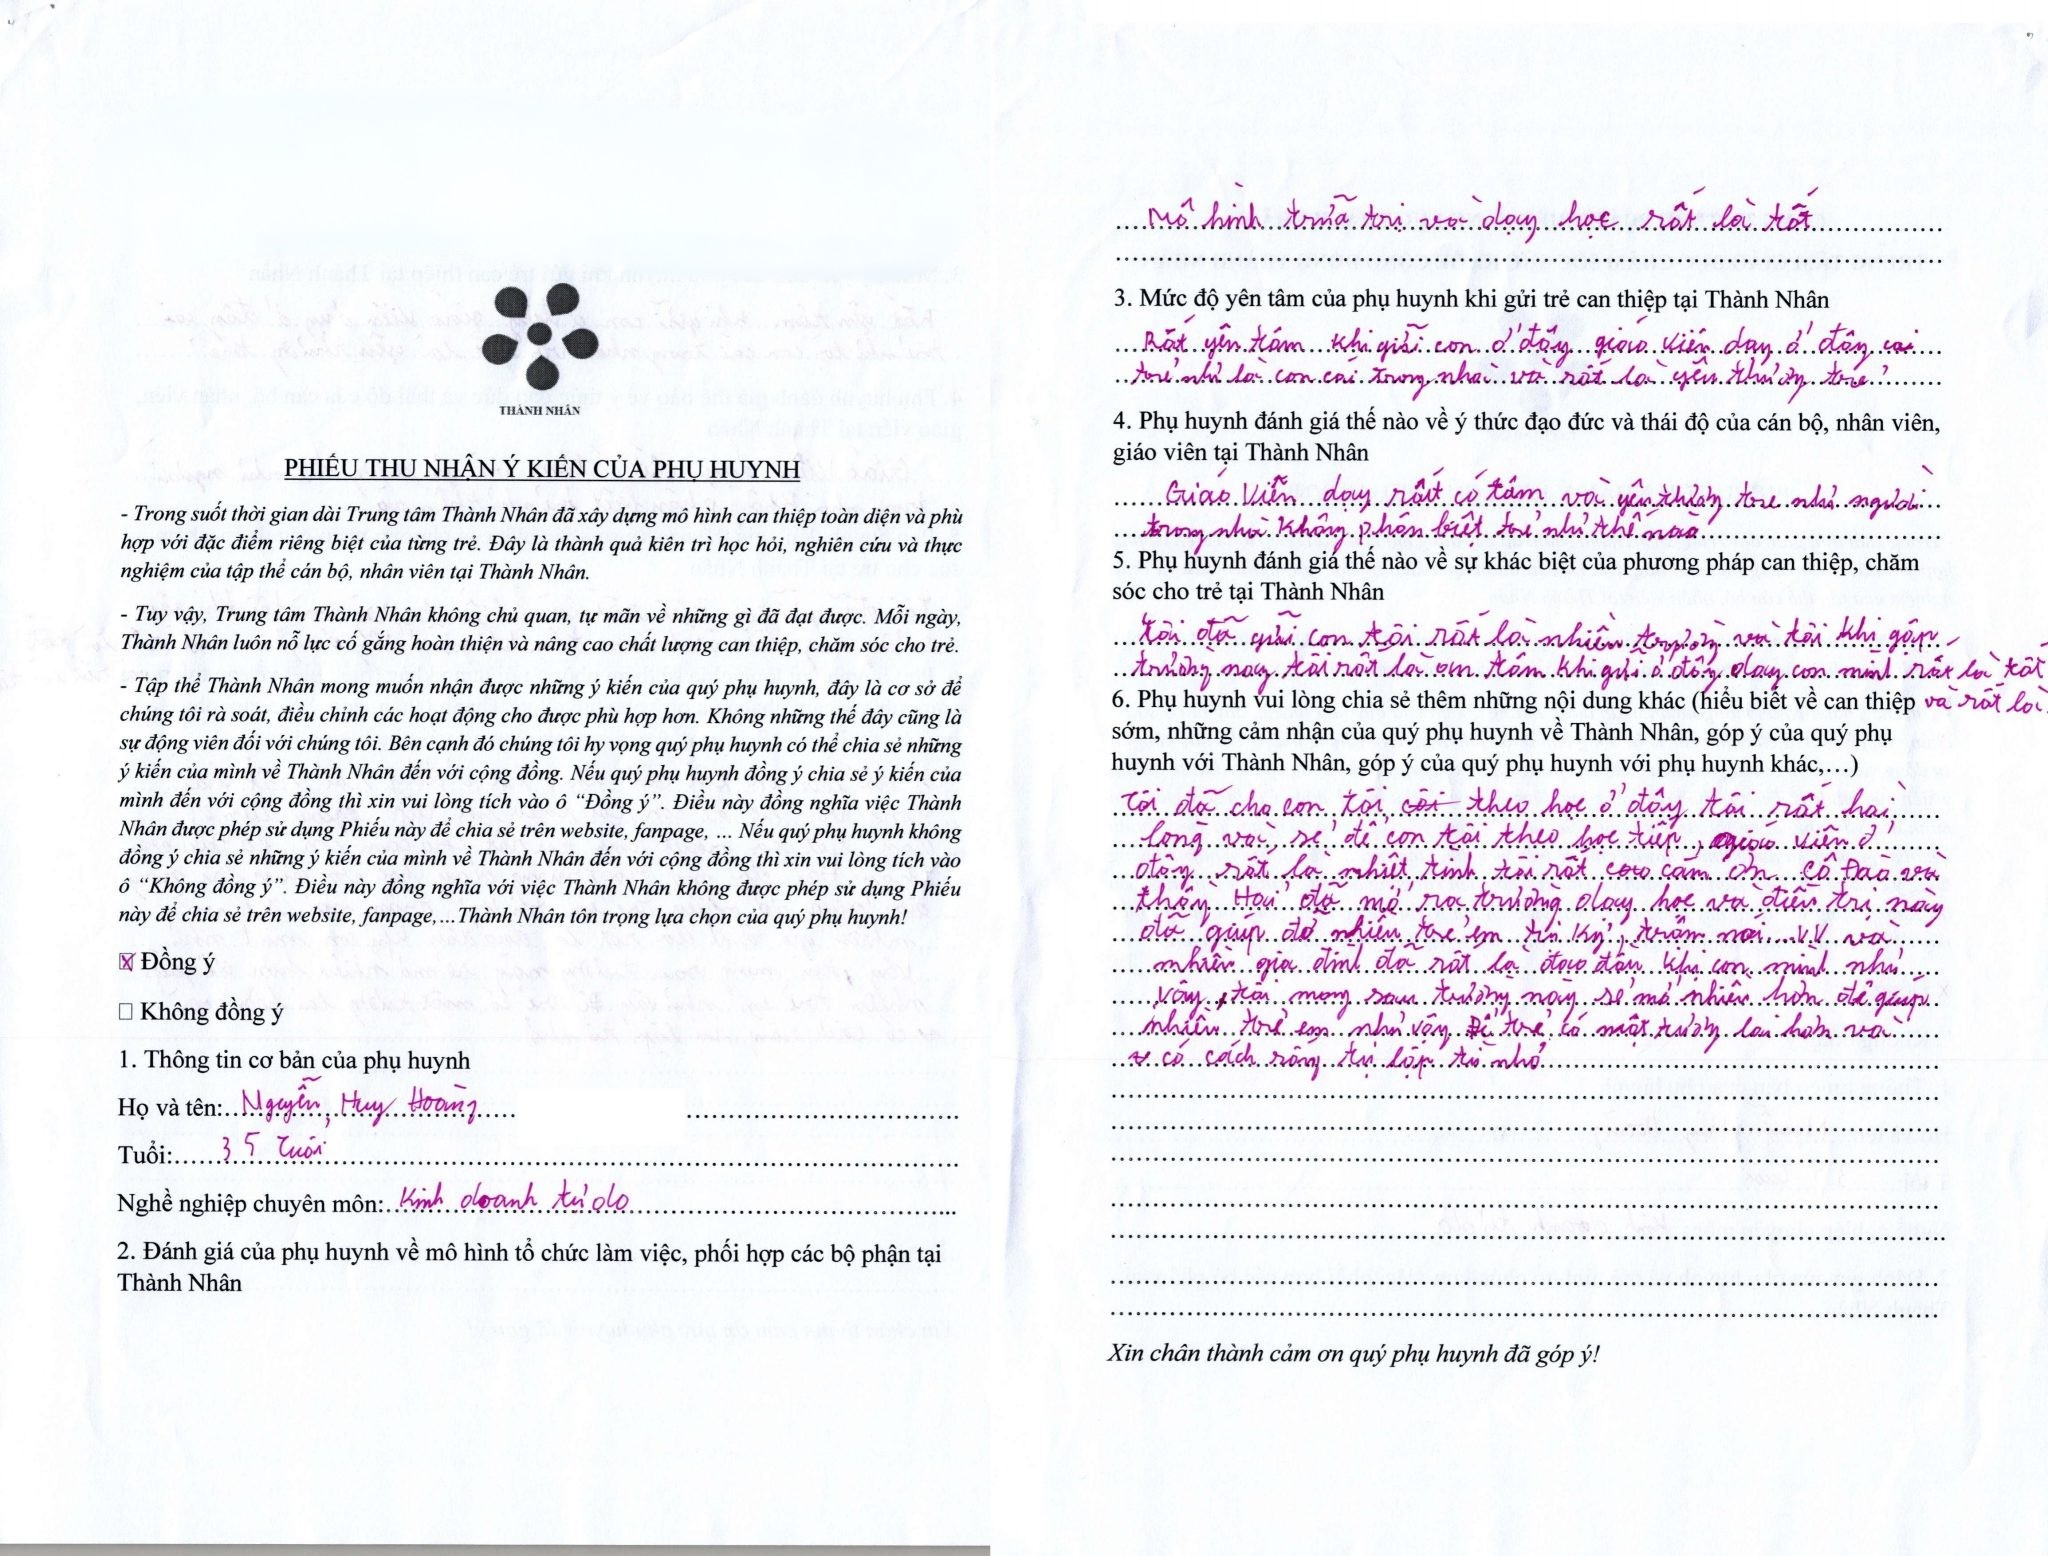 THÀNH NHÂN
PHIẾU THU NHẬN Ý KIẾN CỦA PHỤ HUYNH
- Trong suốt thời gian dài Trung tâm Thành Nhân đã xây dựng mô hình can thiệp toàn diện và phù
hợp với đặc điểm riêng biệt của từng trẻ. Đây là thành quả kiên trì học hỏi, nghiên cứu và thực
nghiệm của tập thể cán bộ, nhân viên tại Thành Nhân.
- Tuy vậy, Trung tâm Thành Nhân không chủ quan, tự mãn về những gì đã đạt được. Mỗi ngày,
Thành Nhân luôn nỗ lực cố gắng hoàn thiện và nâng cao chất lượng can thiệp, chăm sóc cho trẻ.
- Tập thể Thành Nhân mong muốn nhận được những ý kiến của quý phụ huynh, đây là cơ sở để
chúng tôi rà soát, điều chỉnh các hoạt động cho được phù hợp hơn. Không những thế đây cũng là
sự động viên đối với chúng tôi. Bên cạnh đó chúng tôi hy vọng quý phụ huynh có thể chia sẻ những
ý kiến của mình về Thành Nhân đến với cộng đồng. Nếu quý phụ huynh đồng ý chia sẻ ý kiến của
mình đến với cộng đồng thì xin vui lòng tích vào ô “Đồng ý”. Điều này đồng nghĩa việc Thành
Nhân được phép sử dụng Phiếu này để chia sẻ trên website, fanpage, ... Nếu quý phụ huynh không
đồng ý chia sẻ những ý kiến của mình về Thành Nhân đến với cộng đồng thì xin vui lòng tích vào
ô “Không đồng ý”. Điều này đồng nghĩa với việc Thành Nhân không được phép sử dụng Phiếu
này để chia sẻ trên website, fanpage,...Thành Nhân tôn trọng lựa chọn của quý phụ huynh!
☒ Đồng ý
☐ Không đồng ý
1. Thông tin cơ bản của phụ huynh
Họ và tên: Nguyễn Huy Hoàng
Tuổi: 35 Tuổi
Nghề nghiệp chuyên môn: Kinh doanh tự do
2. Đánh giá của phụ huynh về mô hình tổ chức làm việc, phối hợp các bộ phận tại
Thành Nhân
Mô hình trữa trị và dạy học rất là tốt
3. Mức độ yên tâm của phụ huynh khi gửi trẻ can thiệp tại Thành Nhân
Rất yên tâm khi gửi con ở đây giáo viên dạy ở đây coi
trẻ như là con cái trong nhà và rất là yêu thương trẻ
4. Phụ huynh đánh giá thế nào về ý thức đạo đức và thái độ của cán bộ, nhân viên,
giáo viên tại Thành Nhân
Giáo Viên dạy rất có tâm và yêu thương trẻ như người
trong nhà không phân biệt trẻ như thế nào
5. Phụ huynh đánh giá thế nào về sự khác biệt của phương pháp can thiệp, chăm
sóc cho trẻ tại Thành Nhân
tôi đã gửi con tôi rất là nhiều trường và tôi khi gặp
trường nay tôi rất là an tâm khi gửi ở đây dạy con mình rất là tốt
và rất là
6. Phụ huynh vui lòng chia sẻ thêm những nội dung khác (hiểu biết về can thiệp
sớm, những cảm nhận của quý phụ huynh về Thành Nhân, góp ý của quý phụ
huynh với Thành Nhân, góp ý của quý phụ huynh với phụ huynh khác,...)
Tôi đã cho con tôi theo học ở đây tôi rất hài
lòng và sẽ để con tôi theo học tiếp, giáo viên ở
đây rất là nhiệt tình tôi rất cám ơn cô Đào và
thầy đã mở ra trường dạy học và điều trị này
đã giúp đỡ nhiều trẻ em tự kỷ, trầm nói...VV và
nhiều gia đình đã rất là đau đầu khi con mình như
vậy, tôi mong sau trường này sẽ mở nhiều hơn để giúp
nhiều trẻ em như vậy để trẻ có một tương lai hơn và
sẽ có cách sống tự lập từ nhỏ
Xin chân thành cảm ơn quý phụ huynh đã góp ý!